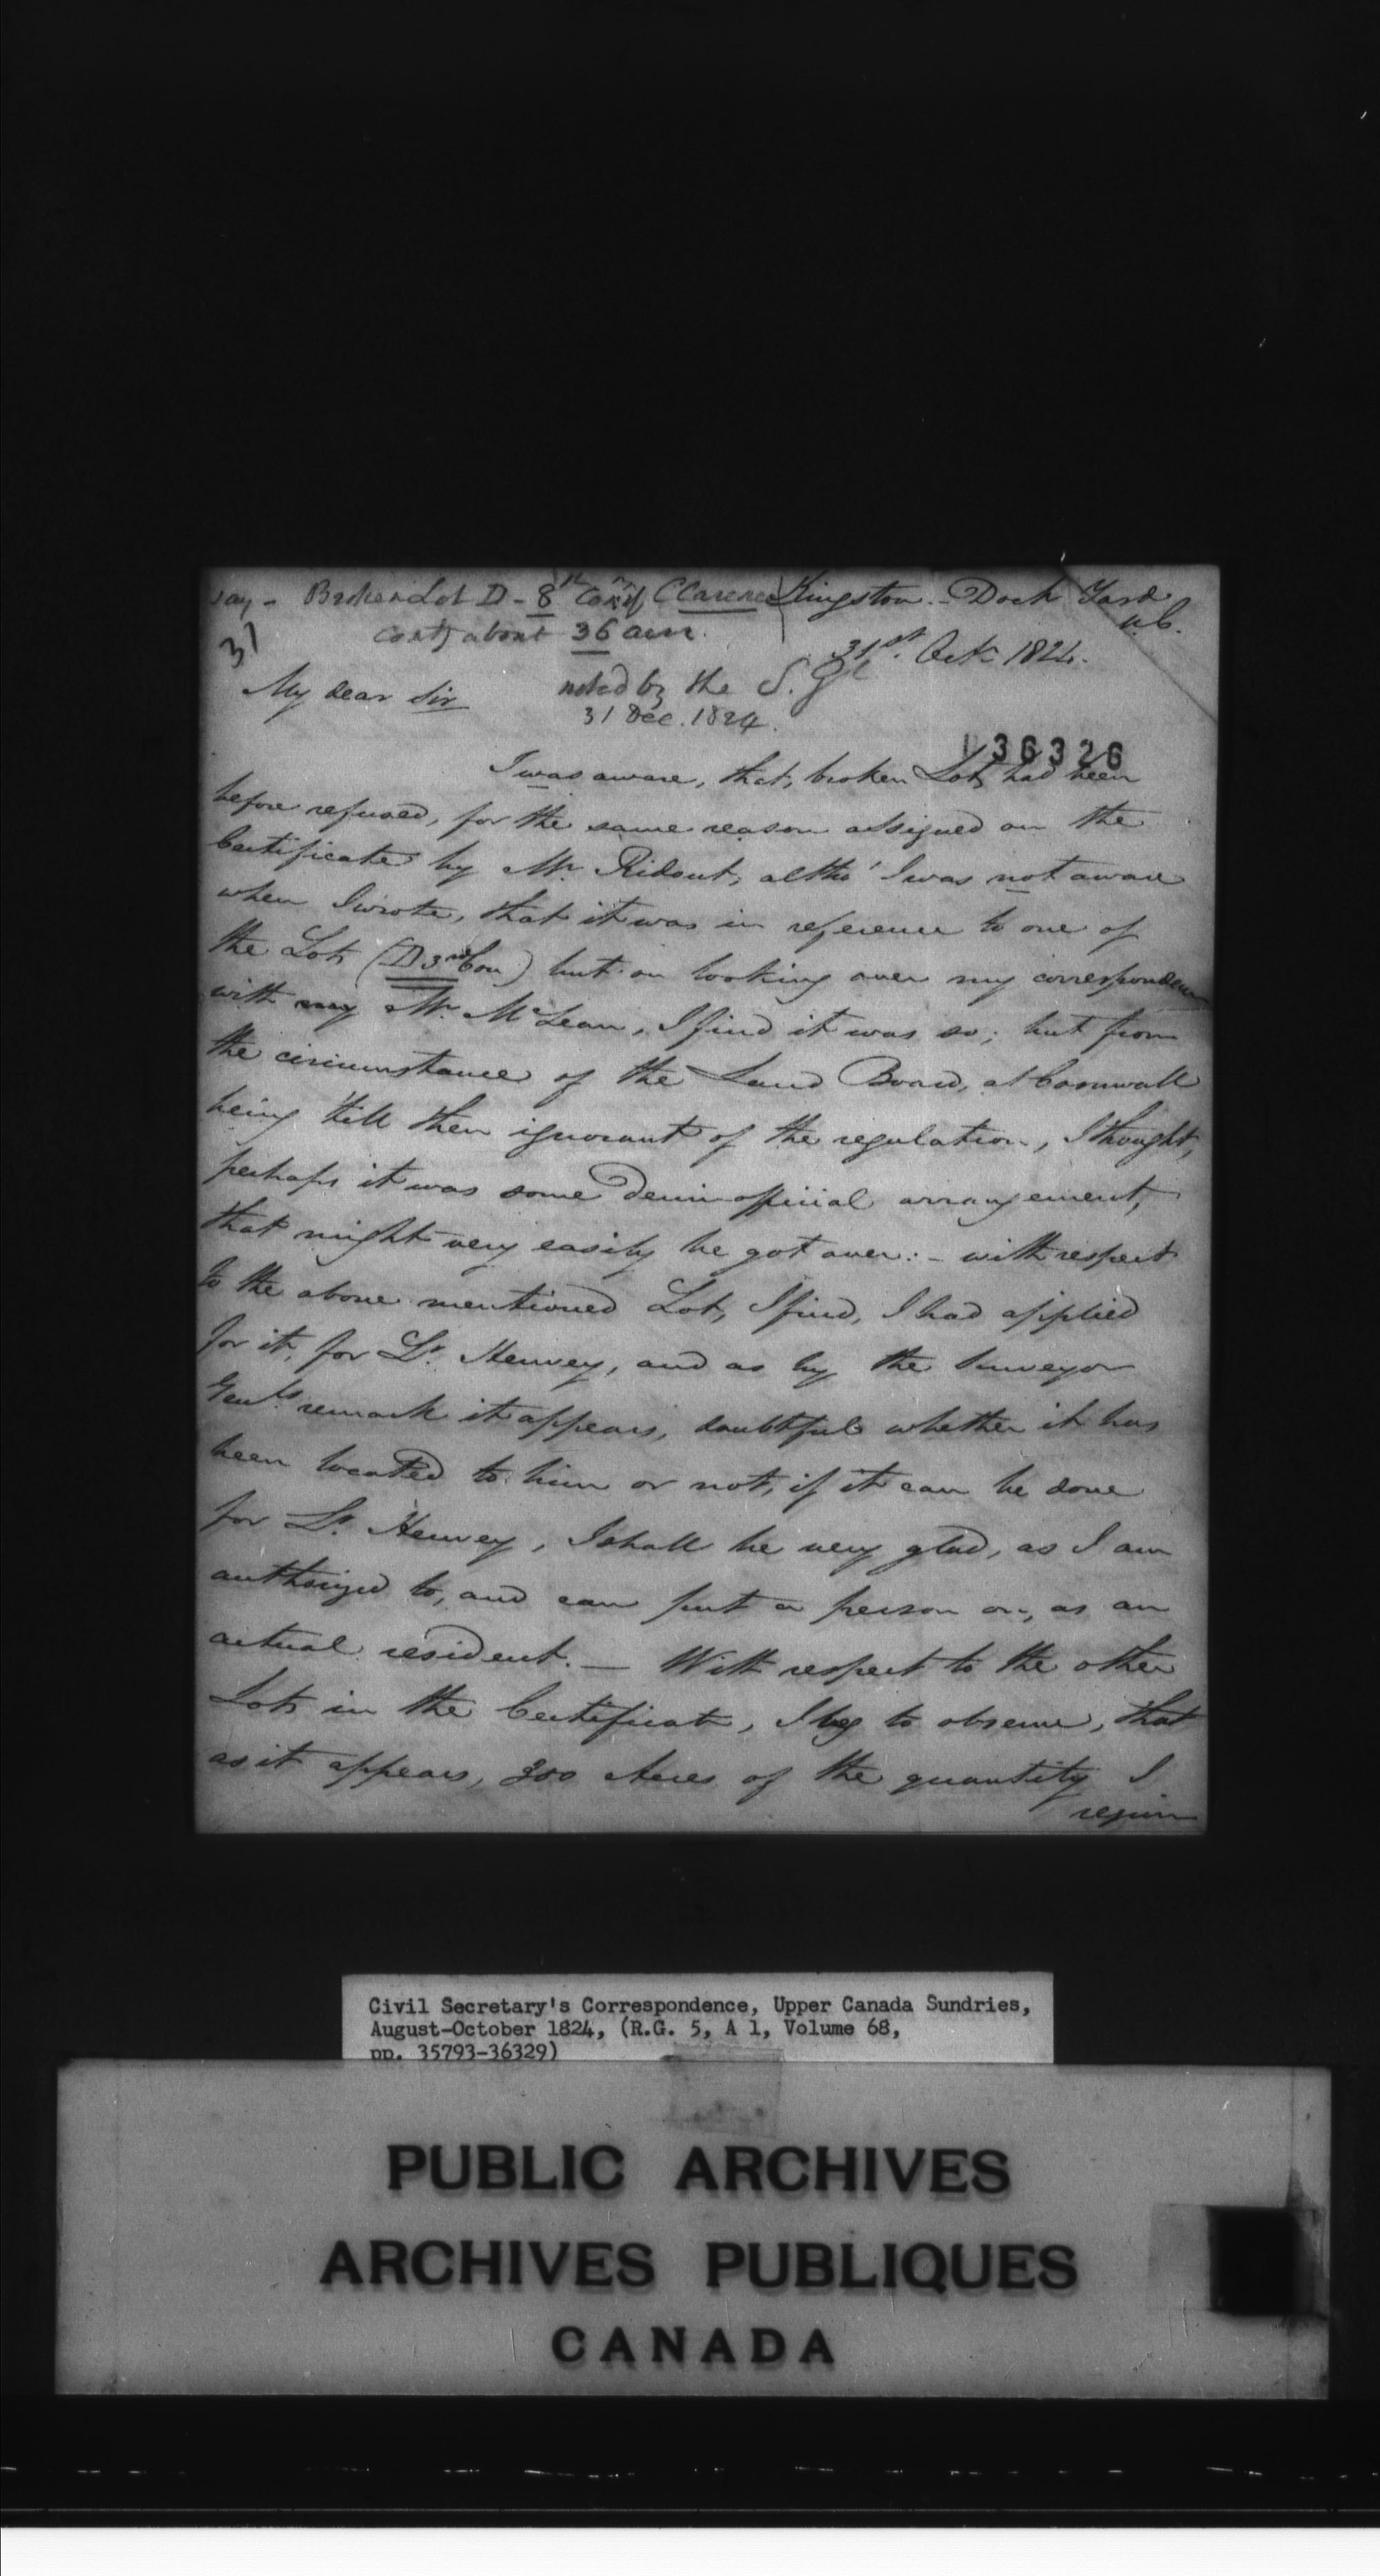 say - Broken Lot D - 8th Con of Clarence
contg about 36 acres.
31
Kingston - Dock Yard
U.C.
31st. Octr 1824.
My dear Sir
noted by the S. Gl
31 Dec. 1824.
36326
I was aware, that, broken Lots had been
before refused, for the same reason assigned on the
Certificate by Mr. Ridout, altho' I was not aware
when I wrote, that it was in reference to one of
the Lots (D 3rd Con) but on looking over my correspondence
with Mr. McLean, I find it was so; but from
the circumstance of the Land Board, at Cornwall
being till then ignorant of the regulation, I thought,
perhaps it was some demi official arrangement,
that might very easily be got over: - with respect
to the above mentioned Lot, I find, I had applied
for it, for Lt. Henvey, and as by the Surveyor
Genls. remark it appears, doubtful whether it has
been located to him or not, if it can be done
for Lt. Henvey, I shall be very glad, as I am
authorized to, and can put a person on, as an
actual resident. — With respect to the other
Lots in the Certificate, I beg to observe, that
as it appears, 300 Acres of the quantity I
require
Civil Secretary's Correspondence, Upper Canada Sundries,
August-October 1824, (R.G. 5, A 1, Volume 68,
pp. 35793-36329)
PUBLIC ARCHIVES
ARCHIVES PUBLIQUES
CANADA